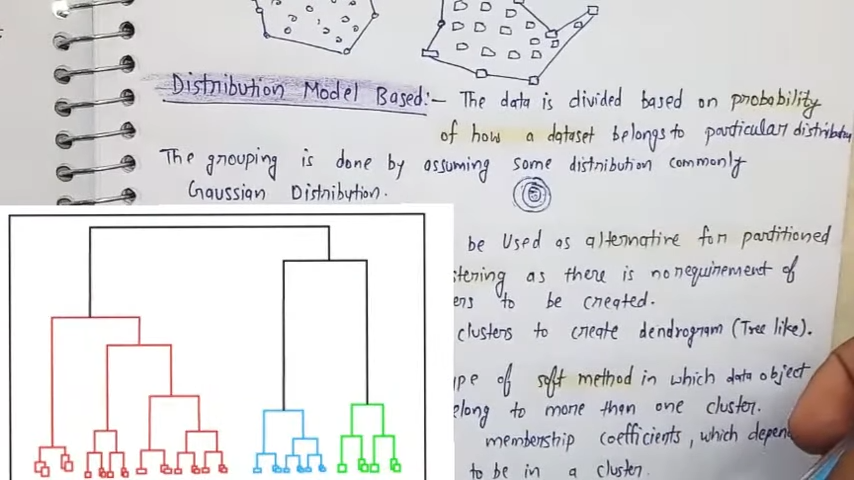 Distribution Model Based:- The data is divided based on probability
of how a dataset belongs to particular
The grouping is done by assuming some distribution commonly
Gaussian Distribution.
be used as alternative for partitioned
as there is no requirement of
to be created.
clusters to create dendrogram (Tree like).
of soft method in which data object
to more than one cluster.
membership coefficients, which
to be in a cluster.